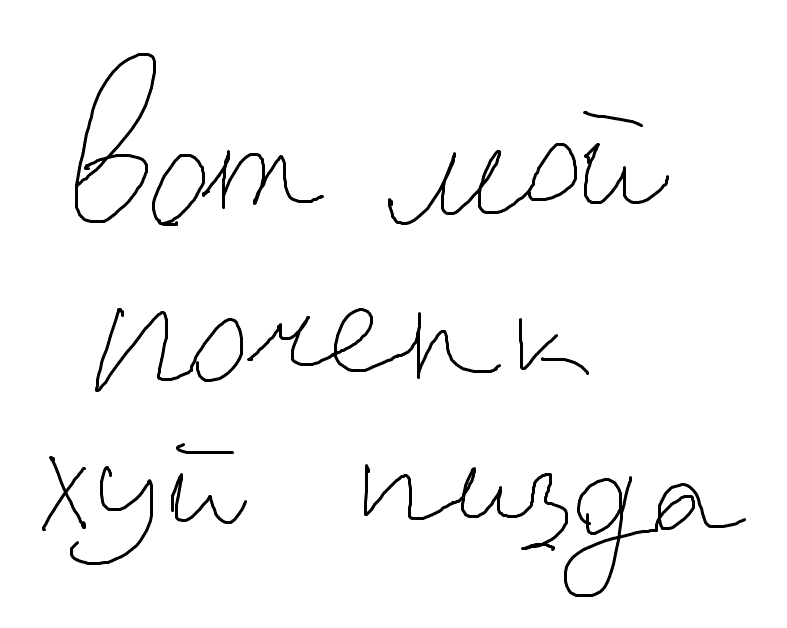 вот мой
почепк
хуй пизда